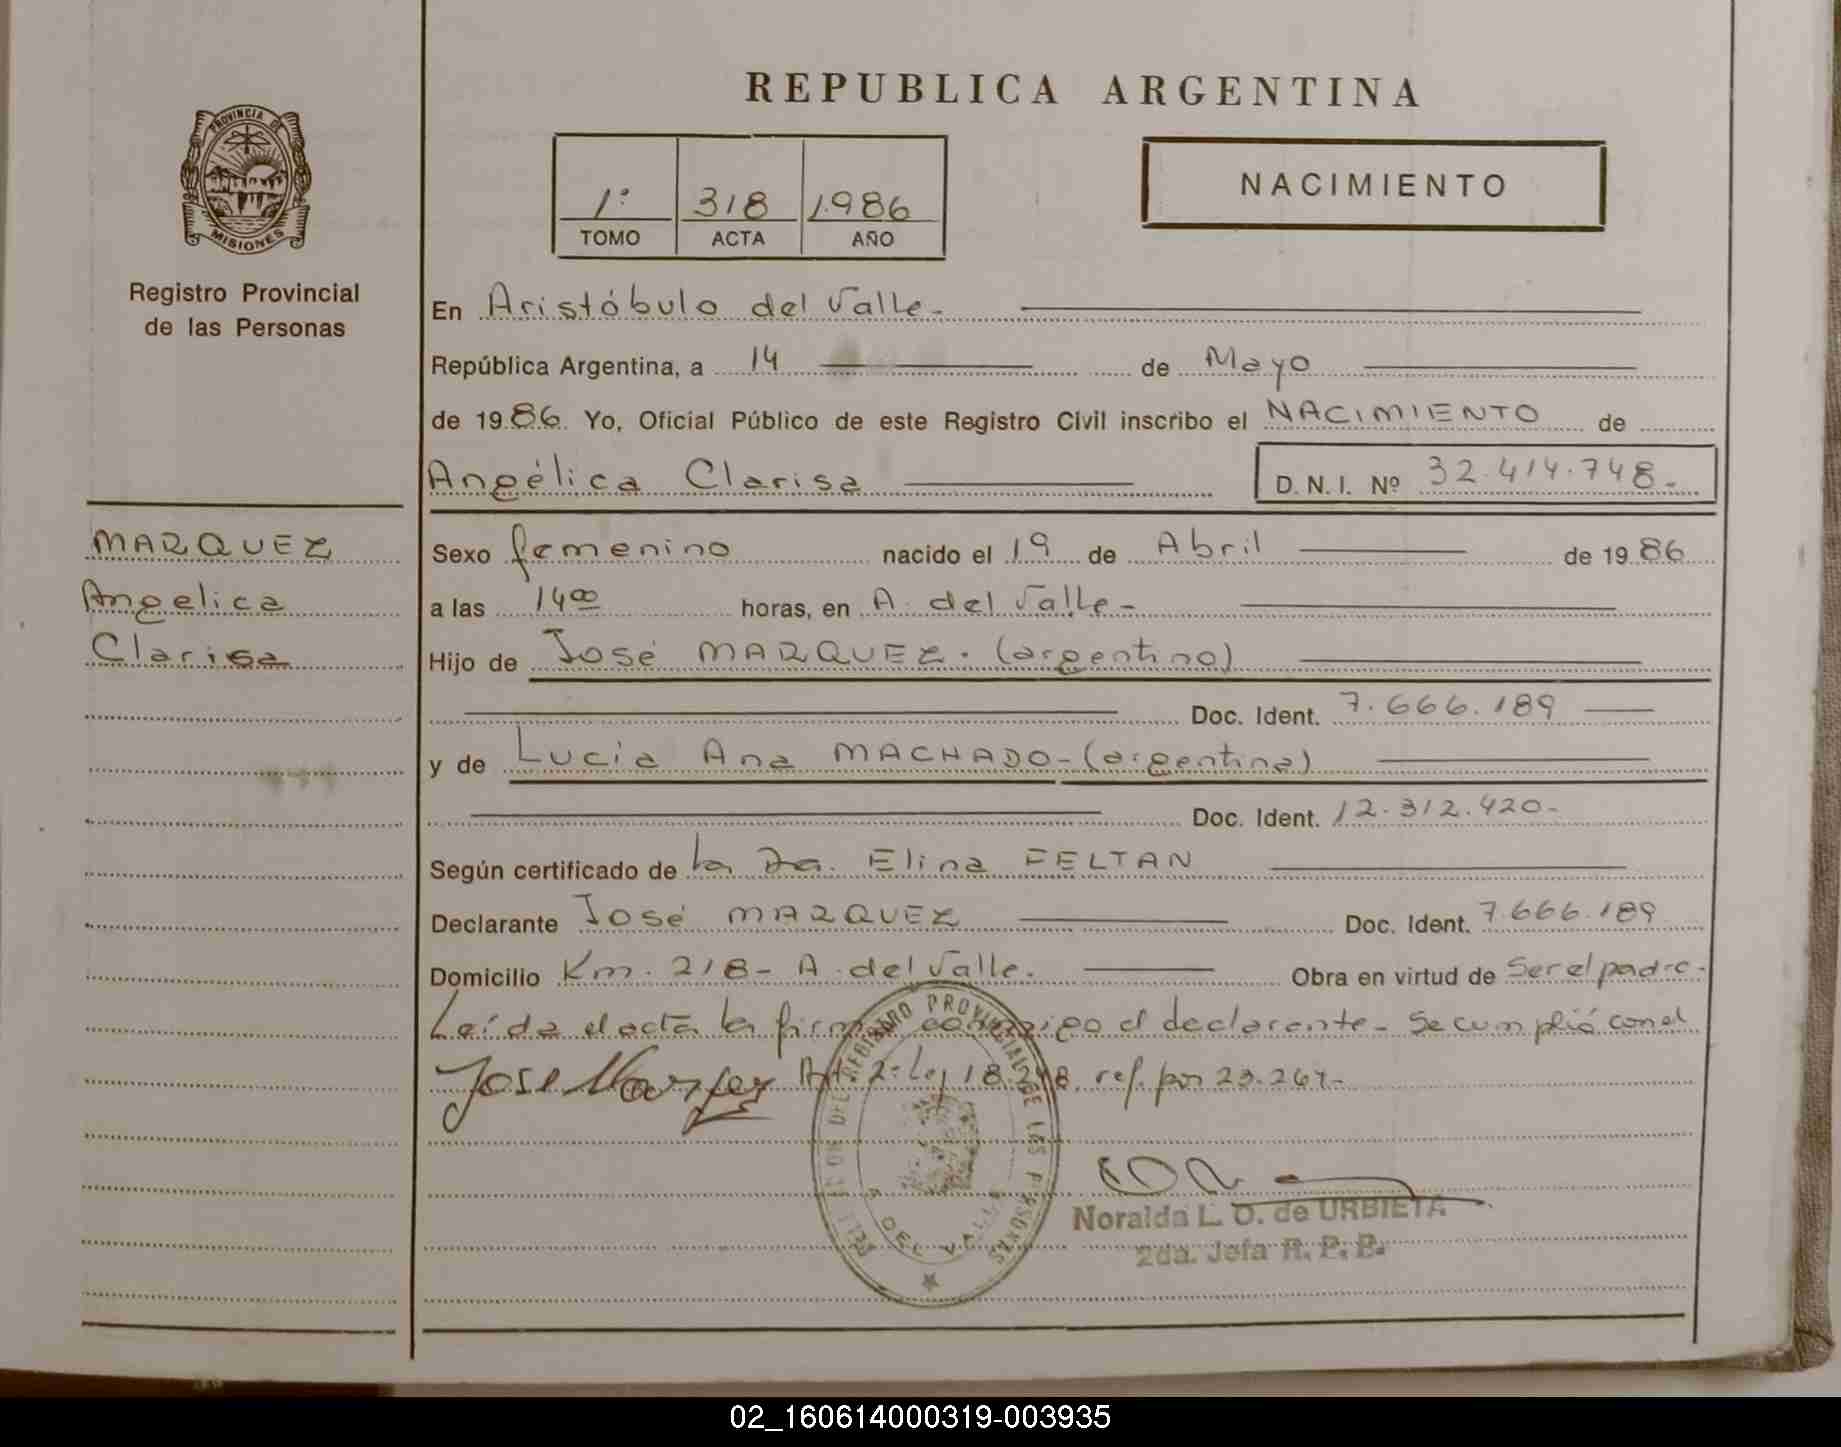 REPUBLICA ARGENTINA
PROVINCIA DE
MISIONES
Registro Provincial
de las Personas
1º 318 1986
TOMO ACTA AÑO
NACIMIENTO
En Aristóbulo del Valle-
República Argentina, a 14 de Mayo
de 1986. Yo, Oficial Público de este Registro Civil inscribo el NACIMIENTO de
Angélica Clarisa D. N. I. Nº 32.414.748.-
MARQUEZ
Angelica
Clarisa
Sexo femenino nacido el 19 de Abril de 1986
a las 14 00 horas, en A. del Valle-
Hijo de José MARQUEZ. (argentino)
Doc. Ident. 7.666.189
y de Lucia Ana MACHADO-(argentina)
Doc. Ident. 12.312.420-
Según certificado de la Dra. Elina FELTAN
Declarante José MARQUEZ Doc. Ident. 7.666.189
Domicilio Km. 218- A. del Valle. Obra en virtud de Ser el padre.
Leída el acta la firma conmigo el declarante- Se cumplió con el
Jose Marquez Art. 2º Ley 18.248. ref. por 23.264-
DEL REGISTRO PROVINCIAL DE LAS PERSONAS
A. DEL VALLE
Noralda L. O. de URBIETA
2da. Jefa R. P. P.
02_160614000319-003935